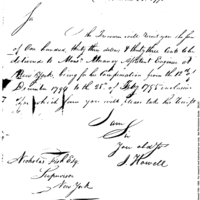 Sir
The Treasurer will remit you the sum
of One hundred, thirty three dollars & thirty three Cents to be
delivered to Mons. Assistant Engineer at
New York, being for his Compensation from the 12th of
December 1794 to the 25th of Feby 1795 inclusive
for which sum you will please take his Receipt
I am
Sir
Your obed St
S Howell
Nicholas Fish Esq.
Supervisor
New York